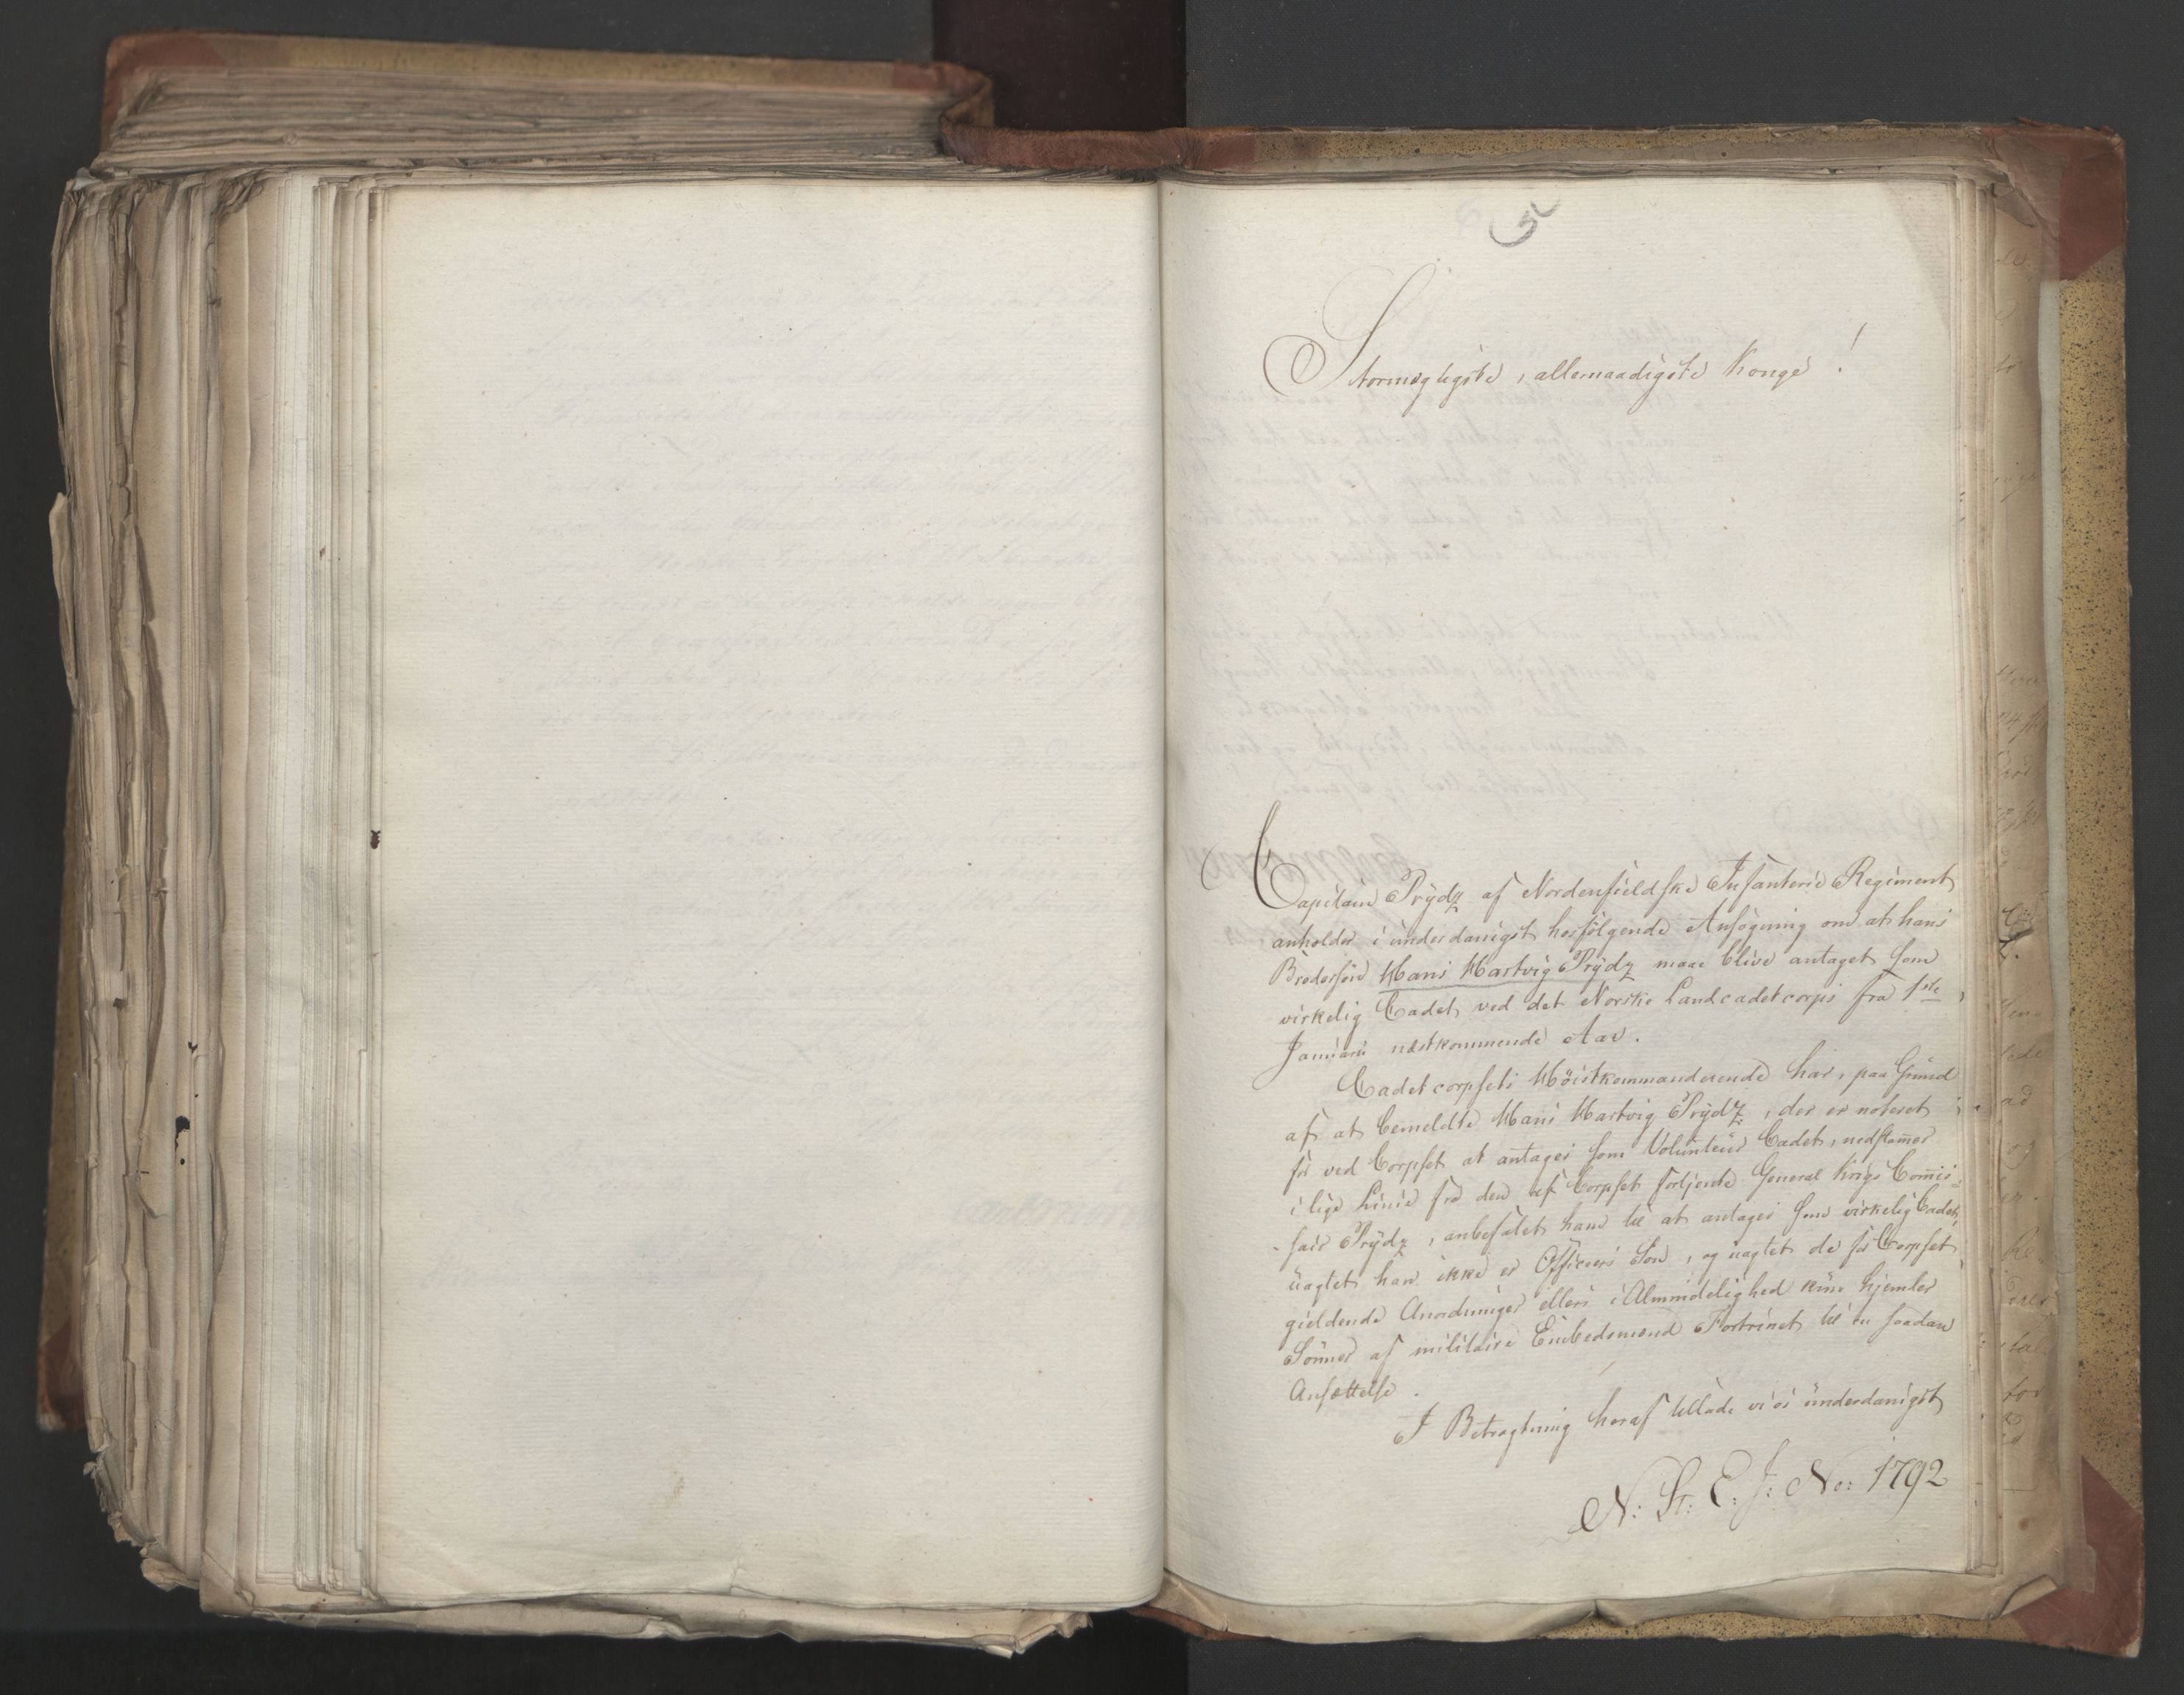 Stormægtigste, allernaadigste Konge!
Capitain Prÿdz af Nordenfieldske Infanterie Regiment
anholder i underdanigst hosfölgende Ansögning om at hans
Brodersön Hans Hartvig Prÿdz maae blive antaget som
virkelig Cadet ved det Norske Landcadetcorps fra 1ste
Januarii næstkommende Aar.
Cadetcorpsets Höistkommanderende har, paa Grund
af at bemeldte Hans Hartvig Prÿdz, der er noteret
for ved Corpset at antages som Volunteur Cadet, nedstamer
i lige Linie fra den af Corpset fortjente General Krigs Comis-
sair Prÿdz, anbefalet ham til at antages som virkelig Cadet,
uagtet han ikke er Officeers Sön, og uagtet de for Corpset
gieldende Anordninger ellers i Almindelighed kun hjemler
Sönner af militaire Embedsmænd Fortrinet til en saadan
Ansættelse.
I Betragtning heraf tillade vi os underdanigst
N: St: E. J: No: 1792